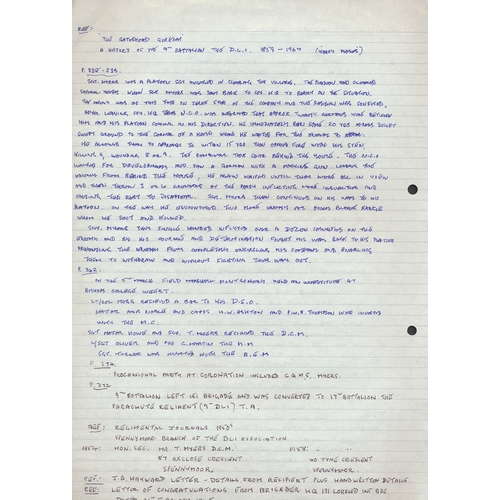 REF:-
'THE GATESHEAD GURKHAS'
A HISTORY OF THE 9TH BATTALION THE D.L.I. 1859 - 1967 (HARRY MOSES)
P. 232-233.
SGT. MYERS WAS A PLATOON SGT INVOLVED IN CLEARING THE VILLAGE. THE PLATOON HAD CLEARED
SEVERAL HOUSES WHEN SGT MYERS WAS SENT BACK TO COY. H.Q TO REPORT ON THE SITUATION.
THE ENEMY WAS AT THIS TIME ON THREE SIDES OF THE COMPANY AND THE POSITION WAS CONFUSED.
AFTER LEAVING COY. HQ THIS N.C.O. WAS INFORMED THAT APPROX TWENTY GERMANS WERE BETWEEN
HIM AND HIS PLATOON COMING IN HIS DIRECTION. HE IMMEDIATELY RAN SOME 20 YDS ACROSS BULLET
SWEPT GROUND TO THE CORNER OF A HOUSE WHERE HE WAITED FOR THE ENEMY TO APPEAR.
HE ALLOWED THEM TO APPROACH TO WITHIN 15 YDS THEN OPENED FIRE WITH HIS STEN
KILLING 4, WOUNDING 3 OR 4. THE REMAINDER TOOK COVER BEHIND THE HOUSE. THE N.C.O
WAITED FOR DEVELOPMENTS AND SAW A GERMAN WITH A MACHINE GUN
FROM BEHIND THE HOUSE, HE AGAIN WAITED UNTIL THEY WERE ALL IN VIEW
AND THEN THREW 3 OR 4 GRENADES AT THE PARTY INFLICTING MORE CASUALTIES AND
CAUSING THE REST TO DISAPPEAR. SGT. MYERS THEN CONTINUED ON HIS WAY TO HIS
PLATOON. ON THE WAY HE ENCOUNTERED TWO MORE GERMANS AT POINT BLANK RANGE
WHOM HE SHOT AND KILLED.
SGT. MYERS THUS SINGLE HANDED INFLICTED OVER A DOZEN CASUALTIES ON THE
ENEMY AND BY HIS COURAGE AND DETERMINATION FOUGHT HIS WAY BACK TO HIS PLATOON
PREVENTING THE GERMANS FROM COMPLETELY ENCIRCLING HIS COMPANY AND ENABLING
THEM TO WITHDRAW AND WITHOUT FIGHTING THEIR WAY OUT.
P. 362.
ON THE 5TH MARCH FIELD MARSHAL MONTGOMERY HELD AN INVESTITURE AT
BISHOPS COLLEGE WEERT.
LT/COL MOGG RECEIVED A BAR TO HIS D.S.O.
MAJOR AND CAPTS. H.W. ASHTON AND P.W.R. THOMPSON WERE INVESTED
WITH THE M.C.
SGT. MAJOR HOWE AND SGT. T. MYERS RECEIVED THE D.C.M.
L/SGT OLIVER AND PTE G. MARTIN THE M.M
SGT. TURNER WAS INVESTED WITH THE B.E.M
P. 374.
PROCESSIONAL PARTY AT CORONATION INCLUDED C.Q.M.S. MYERS.
P. 372
9TH BATTALION LEFT 151 BRIGADE AND WAS CONVERTED TO 17TH BATTALION THE
PARACHUTE REGIMENT (9TH DLI) T.A.
REF: REGIMENTAL JOURNALS 1950'S
SPENNYMOOR BRANCH OF THE DLI ASSOCIATION
1957:- HON. SEC. MR T. MYERS D.C.M. 1958:-
87 OXCLOSE CRESCENT 40 TYNE CRESCENT
SPENNYMOOR. SPENNYMOOR.
REF:- J.A. HAYWARD LETTER - DETAILS FROM RECIPIENT PLUS HANDWRITTEN DETAILS.
REF: LETTER OF CONGRATULATIONS FROM BRIGADIER HQ 151 LORRIED INF BDE